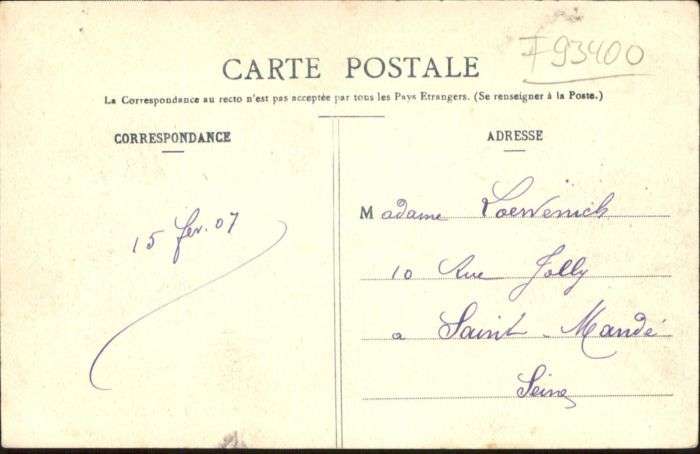 F93400
CARTE POSTALE
La Correspondance au recto n'est pas acceptée par tous les Pays Etrangers. (Se renseigner à la Poste.)
CORRESPONDANCE
15 fev. 07
ADRESSE
Madame Loewenick
10 Rue Jolly
a Saint-Mandé
Seine